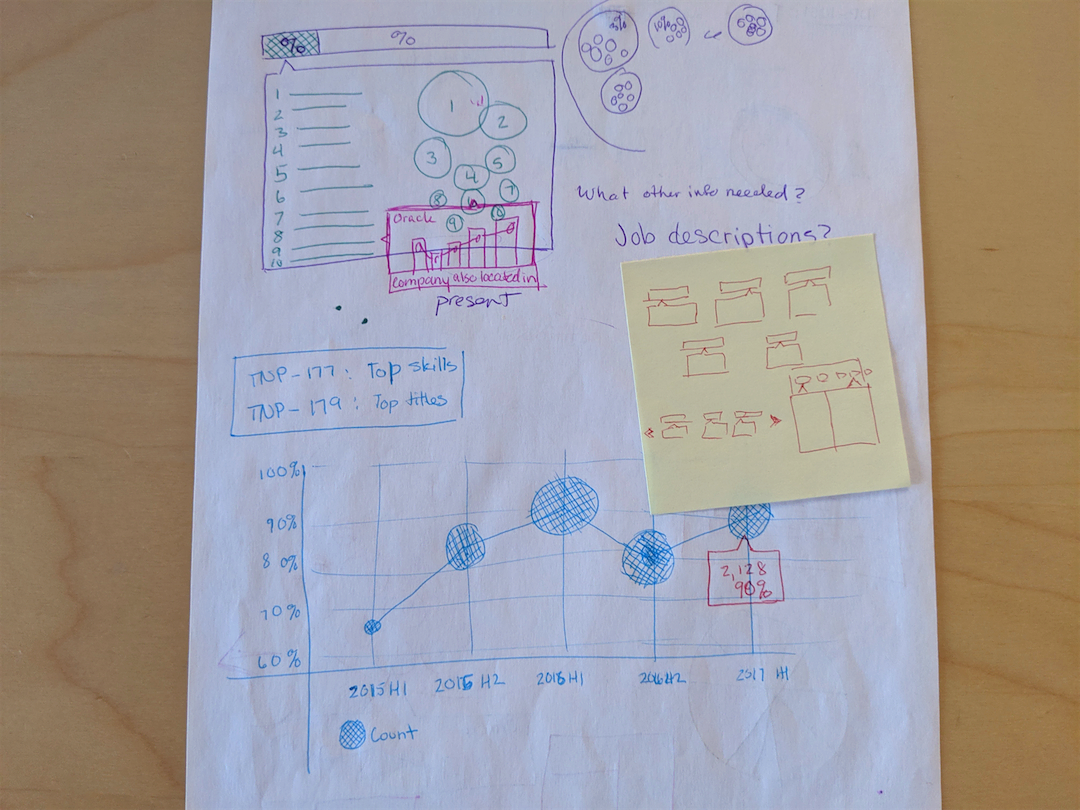 % %
1
2
3
4
5
6
7
8
9
10
1
2
3
5
4
7
8
9
10
Oracle
Company also located in
present
10%
What other info needed?
Job descriptions?
TNP-177: Top skills
TNP-179: Top titles
100%
90%
80%
70%
60%
2,128
90%
2015 H1 2015 H2 2016 H1 2016 H2 2017 H1
Count